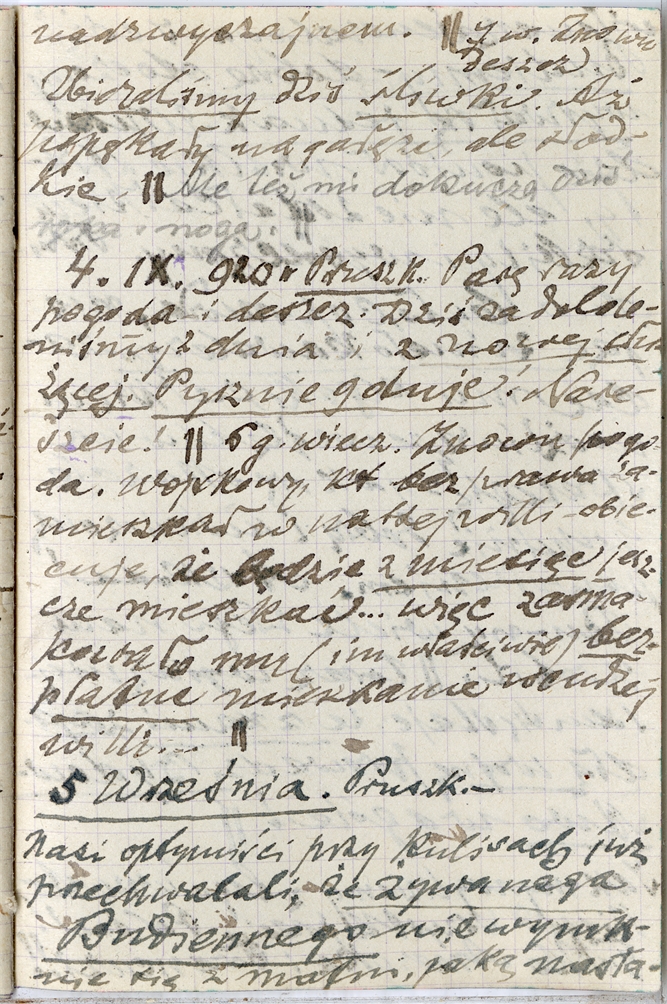 nadzwyczajnem. || 7 w. Znowu
deszcz.
Zbieraliśmy dziś śliwki. Aż
popękały na gałęzi, ale słod-
kie. || Ale też mi dokucza dziś
ręka i noga. ||
4. IX. 920 r Pruszk. Parę razy
pogoda i deszcz. Dziś zadowole-
niśmy z dnia i z nowej służ
żącej. Pysznie gotuje! Nare-
szcie! || 6 g. wiecz. Znowu pogo
da. Wojskowy, kt bez prawa za-
mieszkał w naszej willi obie-
cuje, że będzie 2 miesiące jesz-
cze mieszkać... więc zasma-
kowało mu (im właściwie) bez-
płatne mieszkanie w cudzej
willi... ||
5 Września. Pruszk.-
Nasi optymiści przy kulisach już
przechwalali, że żywa noga
Budiennego nie wymk-
nie się z matni, jaką nasta-